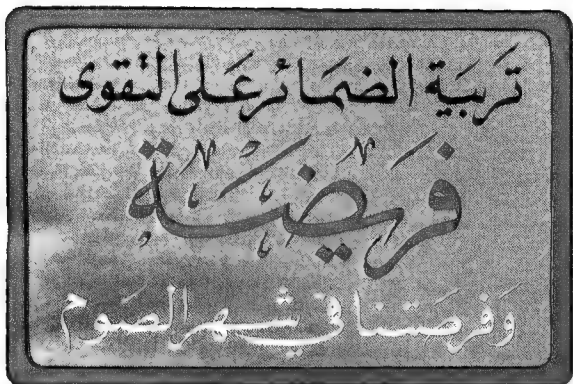 تربية الضمائر على التقوى
فريضة
وفرصتنا في شهر الصوم